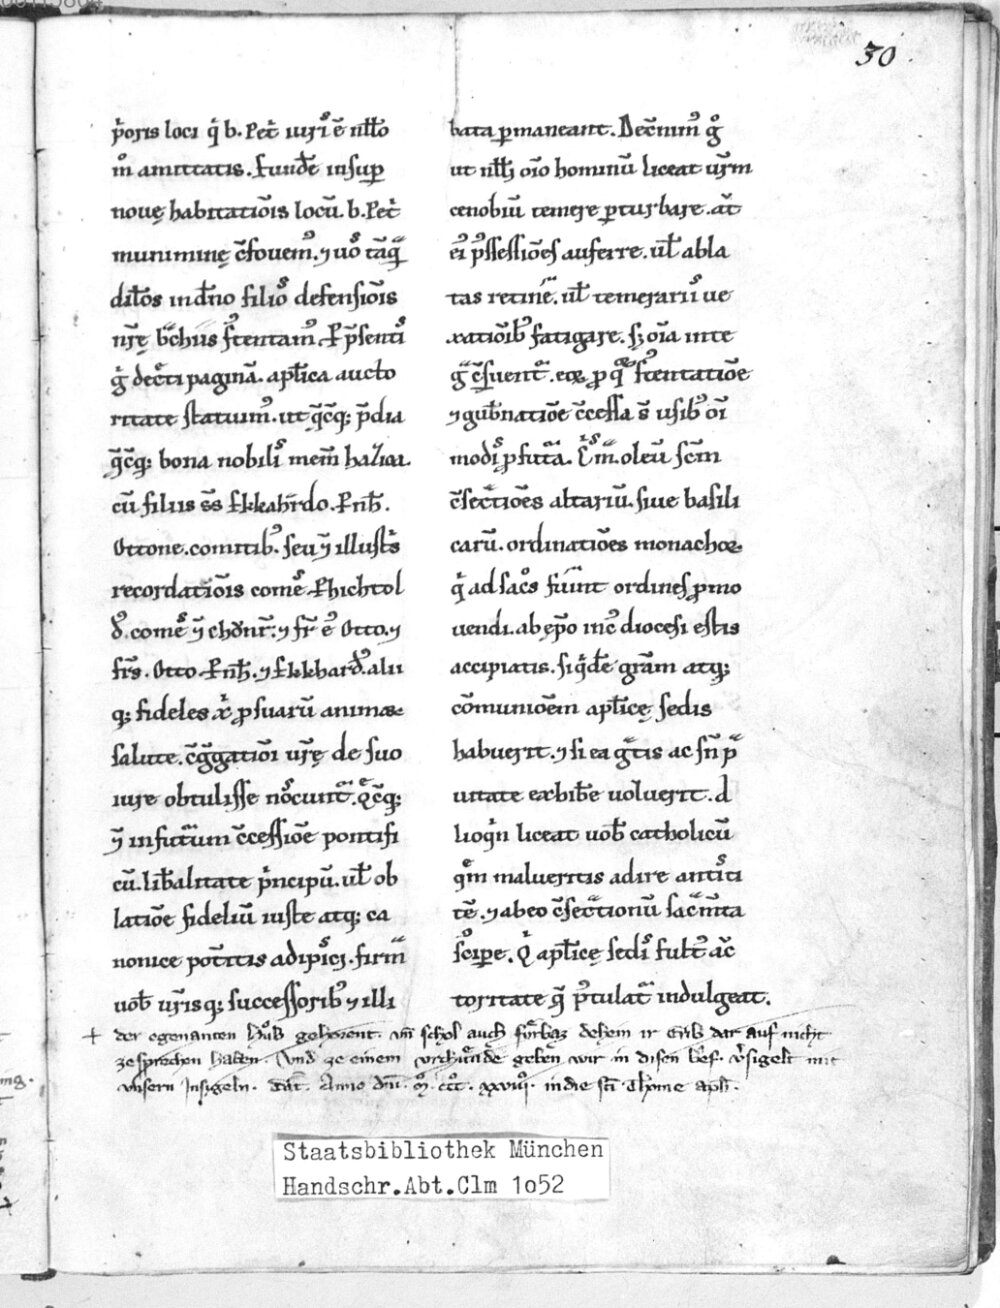 30
p̄oris loci q̇ b. Pet̄ iurᷤ ē nłło
m̊ amittatis. Eundē insuꝑ
nouę habitatiōis locū. b. Pet̄
muniminę c̄fouem᷒. ⁊ uo
dił̄os in dn̄o filioᷤ defensiōis
nr̄ę
ritate statuim᷒. ut q̄cq̨; p̄dia
q̄cq̨; bona nobilᷤ mem̄ haziga.
cū filiis s̄s Ekkahr̄do. Ern̄h̄.
Ottone. comitib᷒. seu ⁊̄ illustr̄s
recordatiōis comeᷤ Ehichtol
d᷒. comeᷤ ⁊̄ chōnr̄. ⁊ fr̄ e᷒ Otto. ⁊
frs̄. Otto. Ern̄h̄. ⁊ Ekkhard᷒. alii
q̨; fideles x̄ ꝓ suarū animaꝝ
salute. c̄gg̃gatiōi ur̄ę de suo
iure obtulisse noᷤcunt᷑. Q̄cq̨;
⁊̄ in futur̄um c̄cessiōe pontifi
cū. lib̄alitate p̄ncipū. uł ob
latiōe fideliū iuste atq̨; ca
nonice pot̄itis adipᷤci. firm̄
uob̄ ur̄isq̨; successorib᷒ ⁊ illi
bata ꝑmaneant. Dec̄nim᷒ g̊
ut nłłi oīo hominū liceat ur̄m
cenobiū temere ꝑturbare. aūt
ei᷒ p᷒ssessiōes auferre. uł abla
tas retinē. uł temerariᷤ ue
xatiōib᷒ fatigare. sꝫ oīa inte
g̃ c̄suent᷑. eoꝝ ꝓ q̨ᷓ ſtentatiōe
⁊ gub̄natiōe c̄cessa s̄ usib᷒ oī
modᷤ ꝓfutᷓa. oleū scm̄
c̄sec̄tiōes altariū. siue basili
carū. ordinatiōes monachoꝝ
q̇ ad sac̊s fūint ordines ꝓmo
uendi. ab ep̄o in c᷒ diocesi estis
accipiatis. si q̇dē gr̄am atq̨;
cōmuniōem apłicę sedis
habuerit. ⁊ si ea gᷓtis ac sn̄ pᷓ
uitate exhib̄e uoluerit. A
lioq̇n liceat uob̄ catholicū
q̄m malueritis adire antᷤti
tē. ⁊ ab eo c̄sec̄tionū sac̄m̄ta
s᷒cipe. Q̇ apłicę sedᷤ fult᷒ auc̄
toritate q̄ p᷒tulat᷑ indulgeat.
+ der egenanten Hůb gehorent. vn̄ schol auch fürbaz dehein ir Erb dar auf nicht
ze sprechen haben. Vnd ze einem vrchūnde geben wir in disen brief. v̄sigelt mit
vnsern Insigeln. Dat̄. Anno dn̄i. M̊. ccc̊. xxviii̊. in die sc̄i Thome apłi.
Staatsbibliothek München
Handschr.Abt.Clm 1o52